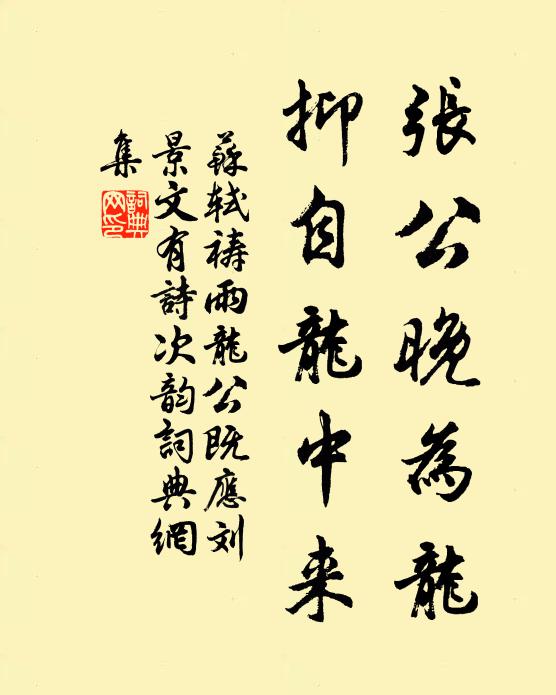 張公晚為龍
抑自龍中来
蘇軾禱雨龍公既應刘
景文有詩次韵詞典網
集
詞典
网印